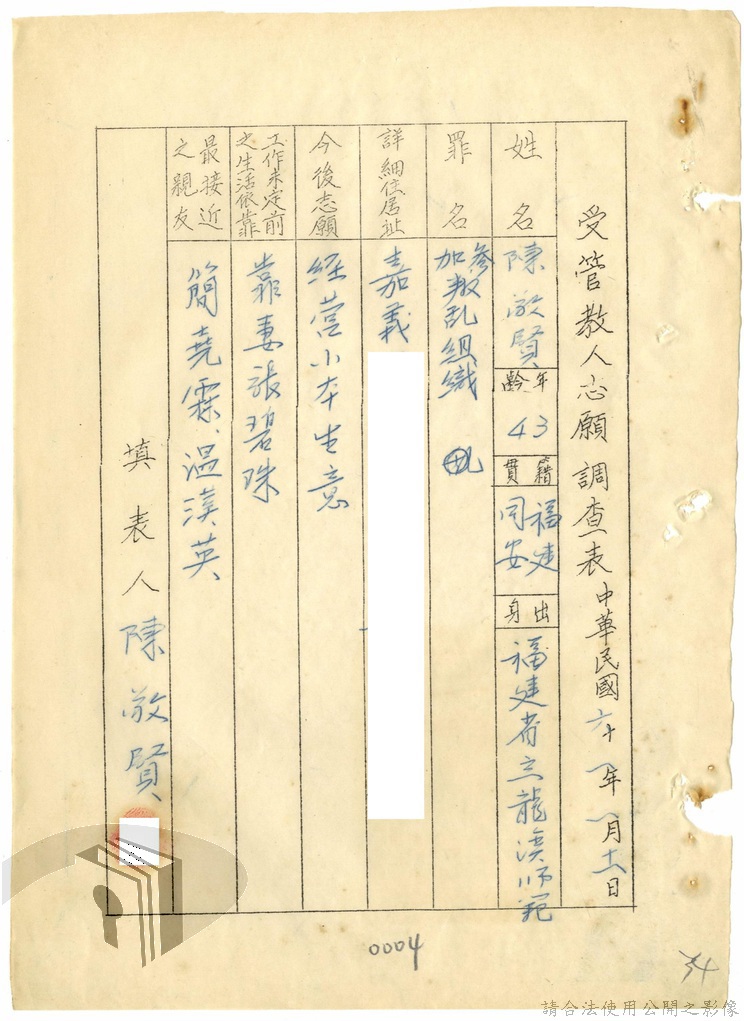 受管教人志願調查表 中華民國六十一年八月十六日
姓名 陳敬賢 年齡 43 籍貫 福建同安 出身 福建省立龍溪師範
罪名 參加叛乱組織
詳細住居址 嘉義
今後志願 經营小本生意
工作未定前之生活依靠 靠妻張碧珠
最接近之親友 簡堯霖、温漢英
填表人 陳敬賢
0004
34
請合法使用公開之影像